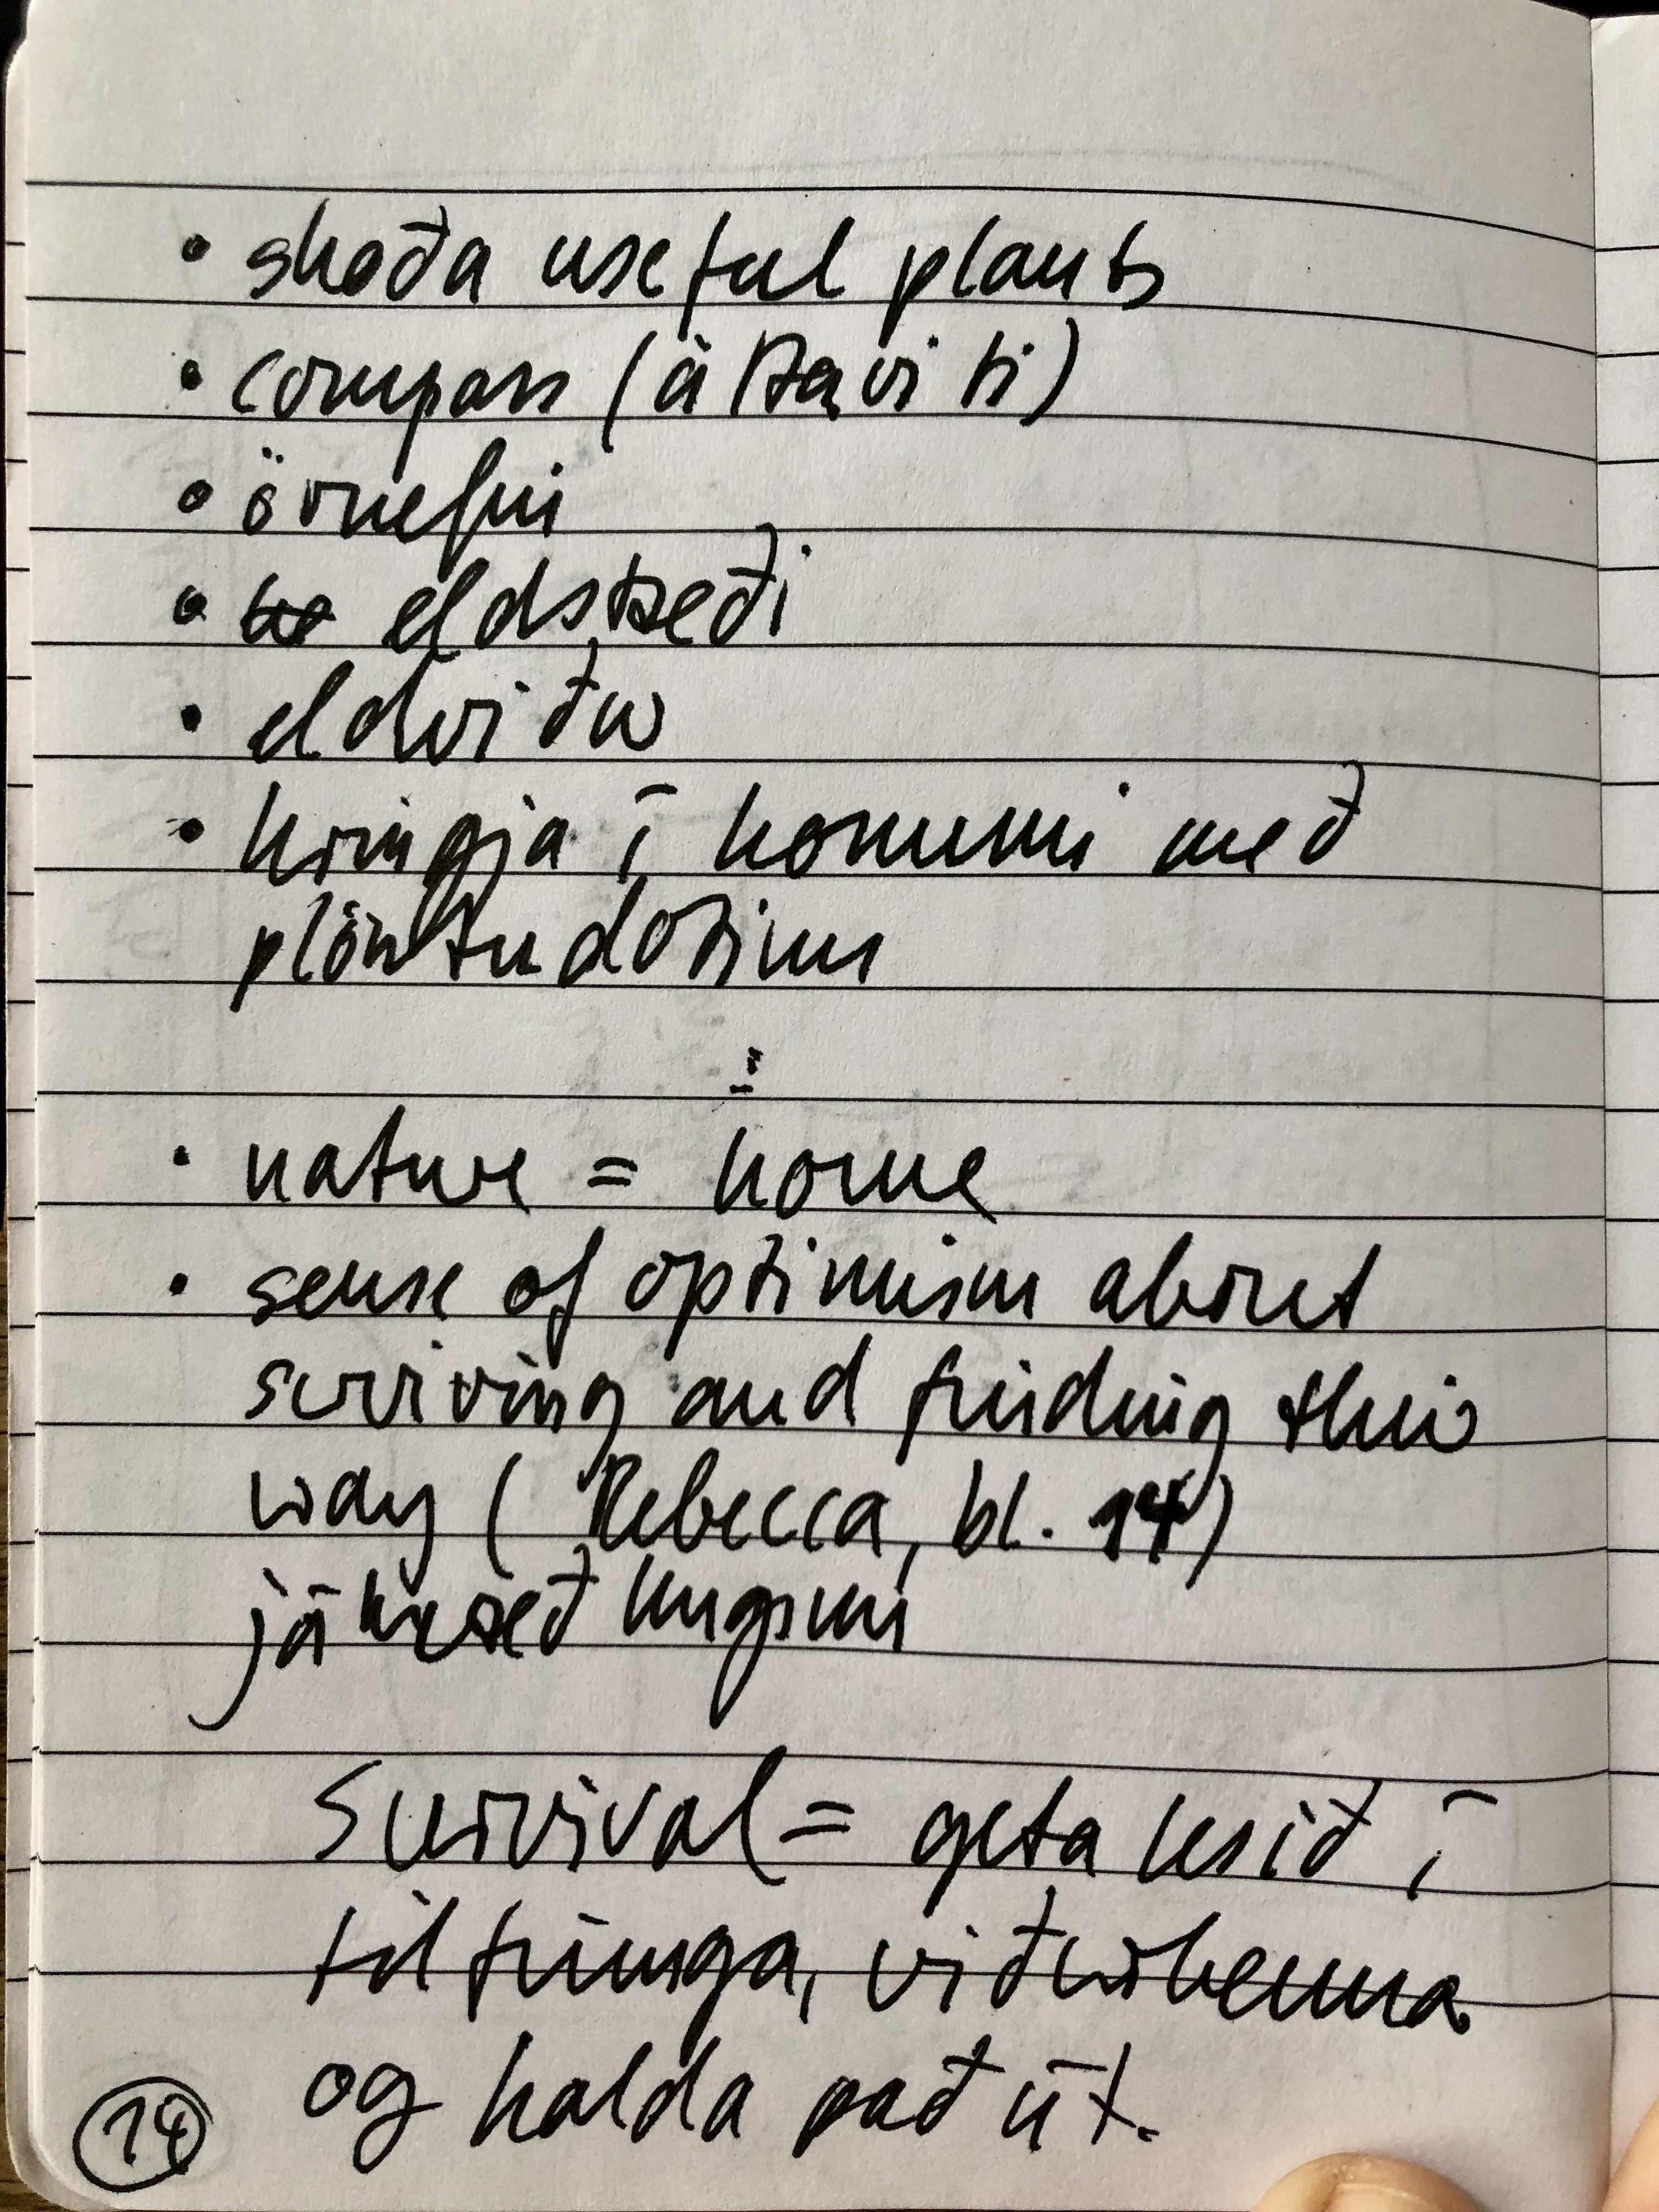 • skoða useful plants
• compass (áttaviti)
• örnefni
• eldstæði
• eldviður
• hringja í konunni með
plöntudótinu
• nature = home
• sense of optimism about
surviving and finding their
way (Rebecca, bl. 14)
jákvæð hugsun
Survival = geta lesið í
tilfinninga, viðurkenna
og halda það út.
14